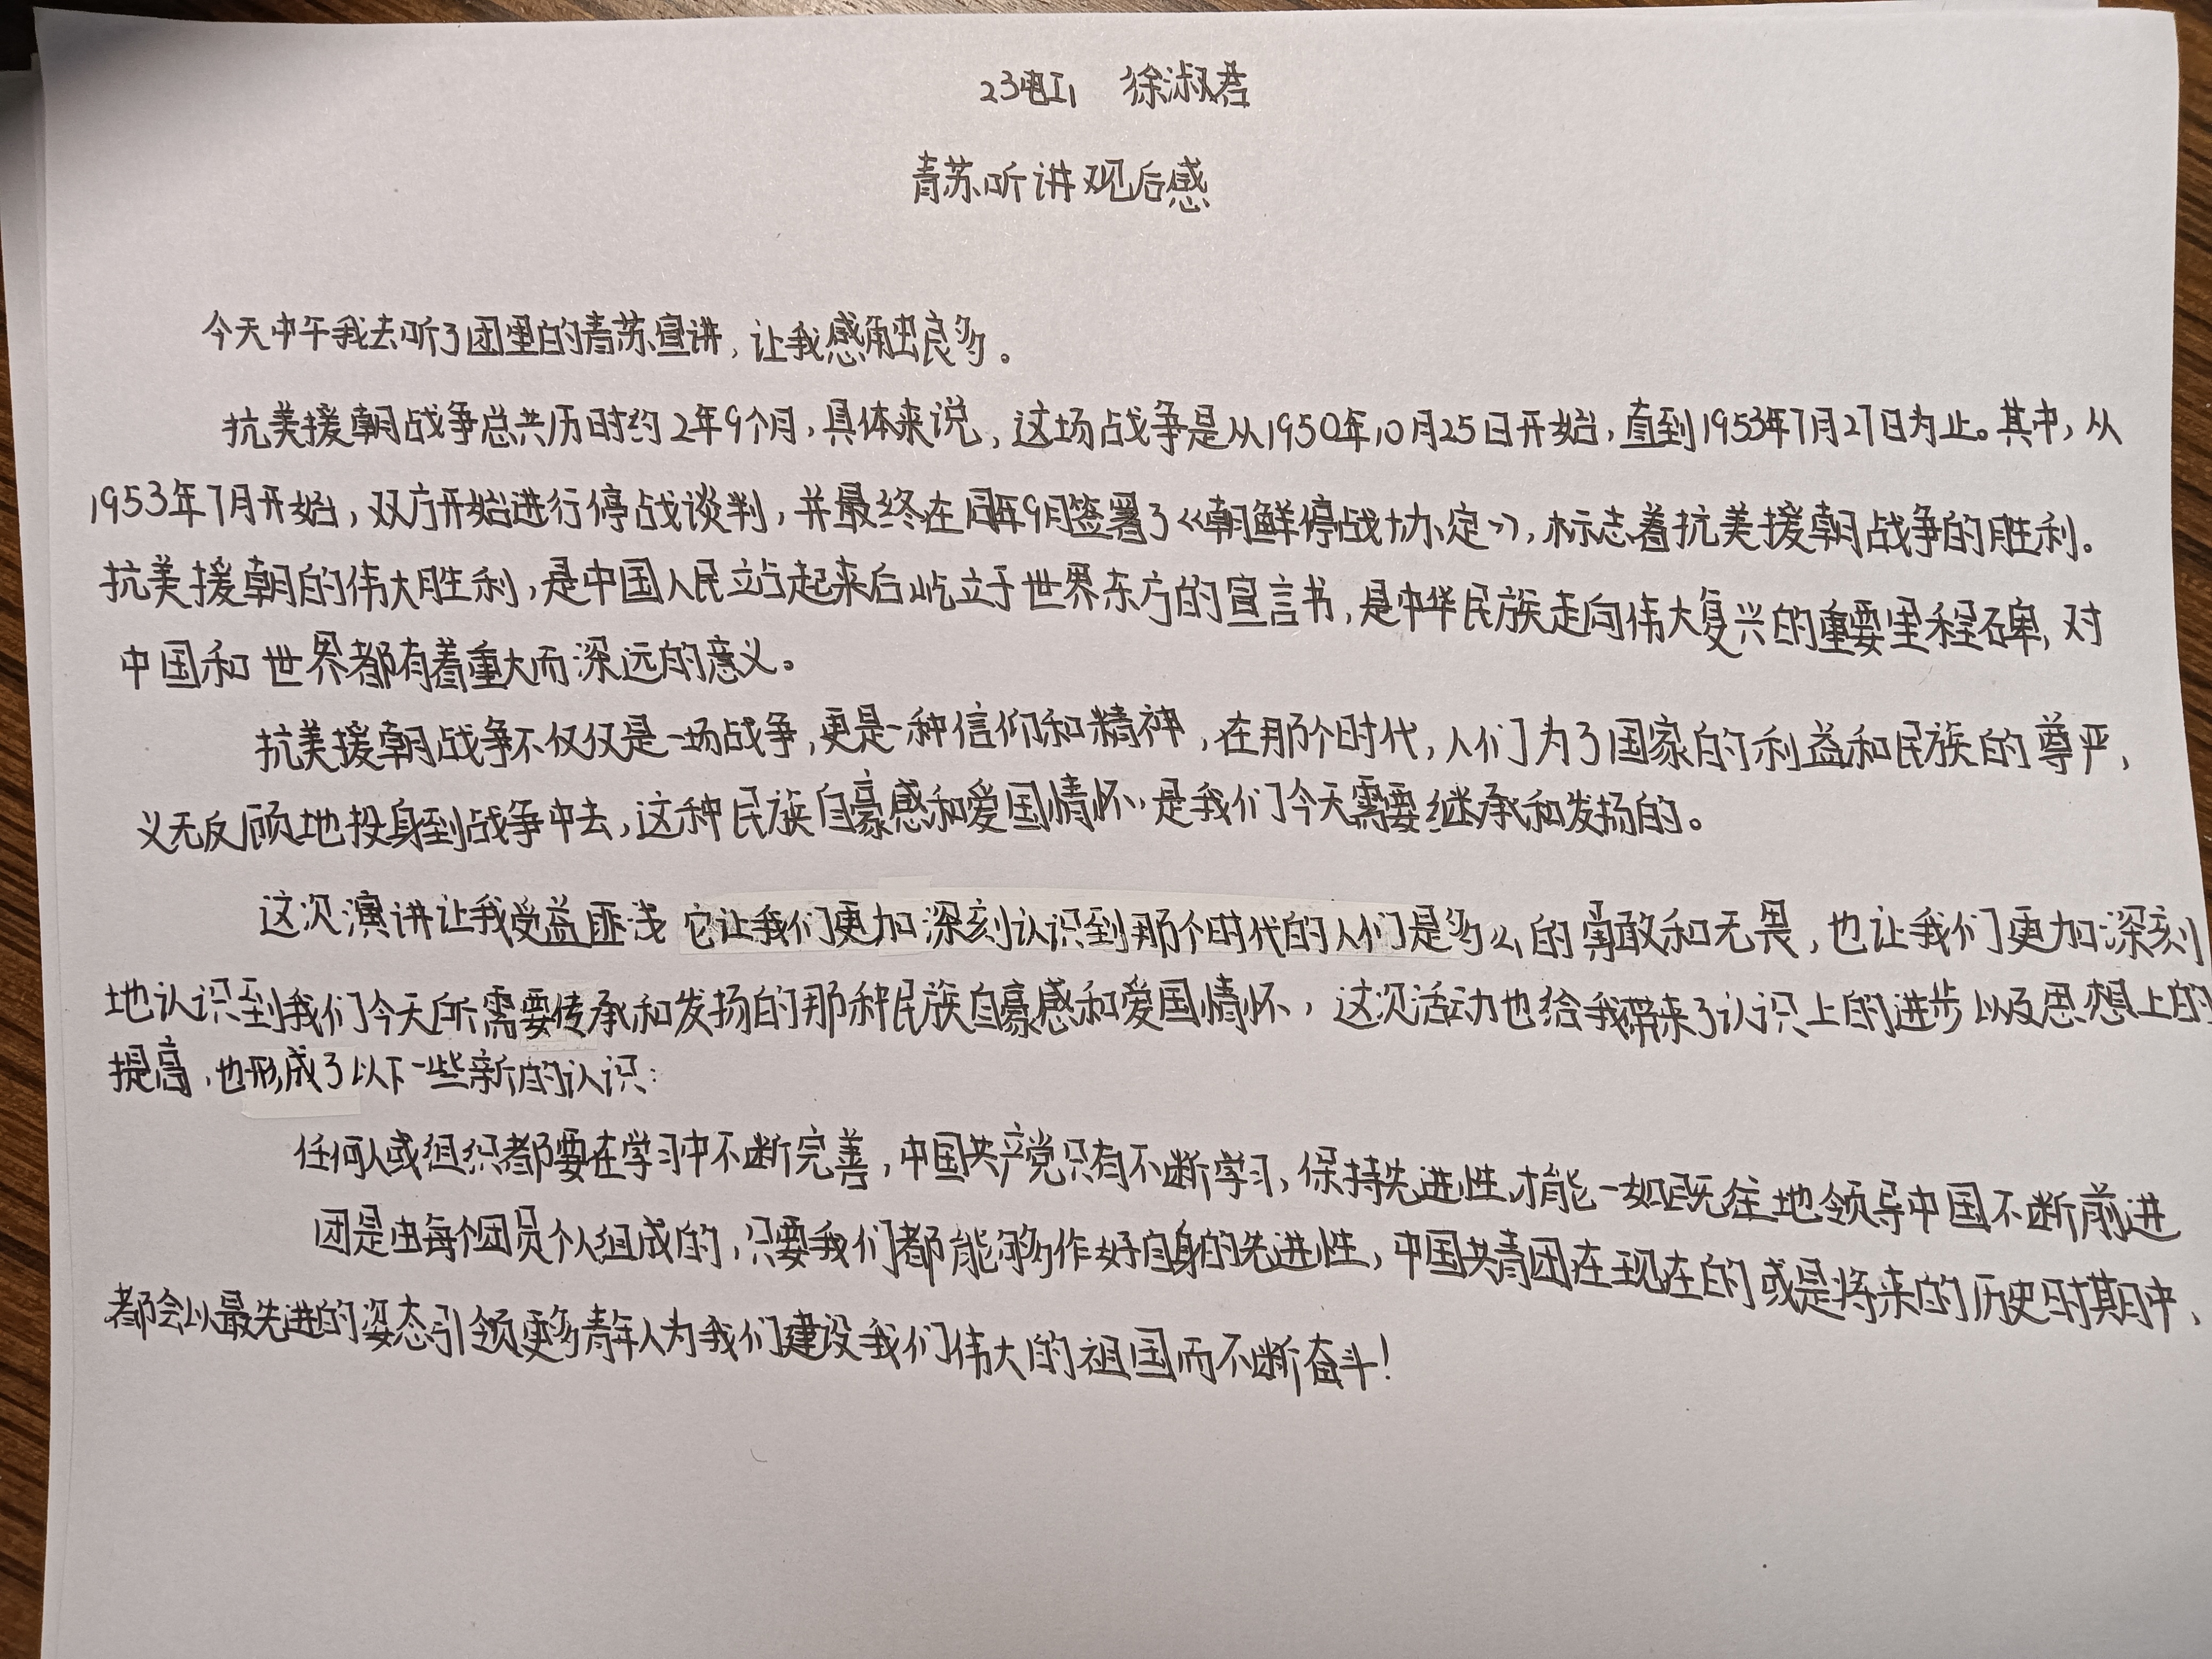 23电工1 徐淑君
青苏听讲观后感
今天中午我去听了团里的青苏宣讲，让我感触良多。
抗美援朝战争总共历时约2年9个月，具体来说，这场战争是从1950年10月25日开始，直到1953年7月27日为止。其中，从
1953年7月开始，双方开始进行停战谈判，并最终在同年9月签署了《朝鲜停战协定》，标志着抗美援朝战争的胜利。
抗美援朝的伟大胜利，是中国人民立占起来后屹立于世界东方的宣言书，是中华民族走向伟大复兴的重要里程碑，对
中国和世界都有着重大而深远的意义。
抗美援朝战争不仅仅是一场战争，更是一种信仰和精神，在那个时代，人们为了国家的利益和民族的尊严，
义无反顾地投身到战争中去，这种民族自豪感和爱国情怀，是我们今天需要继承和发扬的。
这次演讲让我受益匪浅 它让我们更加深刻认识到那个时代的人们是多么的勇敢和无畏，也让我们更加深刻
地认识到我们今天所需要传承和发扬的那种民族自豪感和爱国情怀，这次活动也给我带来了认识上的进步以及思想上的
提高，也形成了以下一些新的认识：
任何人或组织都要在学习中不断完善，中国共产党只有不断学习、保持先进性，才能一如既往地领导中国不断前进
团是由每个团员个人组成的，只要我们都能够作好自身的先进性，中国共青团在现在的或是将来的历史时期中，
都会以最先进的姿态引领更多青年人为我们建设我们伟大的祖国而不断奋斗！